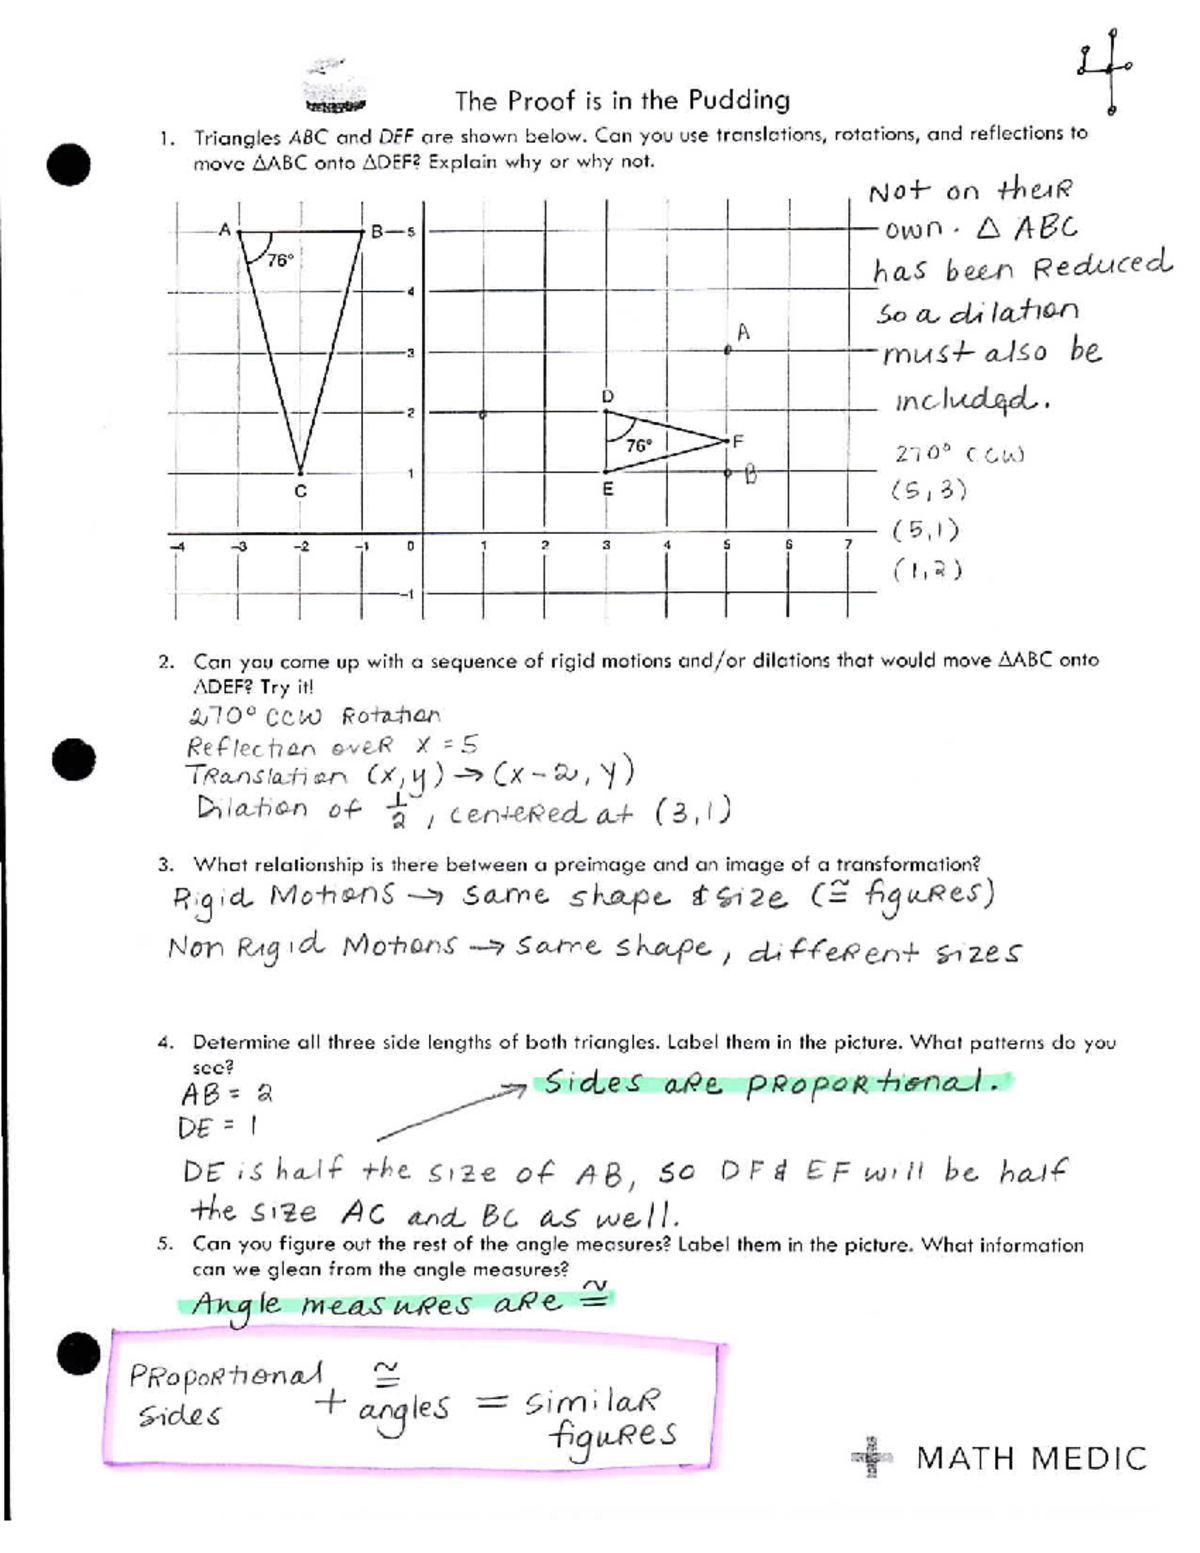 4
The Proof is in the Pudding
1. Triangles ABC and DEF are shown below. Can you use translations, rotations, and reflections to
move △ABC onto △DEF? Explain why or why not.
Not on their
own. △ ABC
has been Reduced
so a dilation
must also be
included.
270° CCW
(5,3)
(5,1)
(1,2)
A
B
5
76°
4
A
3
D
2
76°
F
1
B
C
E
-4 -3 -2 -1 0 1 2 3 4 5 6 7
-1
2. Can you come up with a sequence of rigid motions and/or dilations that would move △ABC onto
△DEF? Try it!
270° CCW Rotation
Reflection over x = 5
Translation (x,y) → (x-2, y)
Dilation of 1/2, centered at (3,1)
3. What relationship is there between a preimage and an image of a transformation?
Rigid Motions → same shape & size (≅ figures)
Non Rigid Motions → same shape, different sizes
4. Determine all three side lengths of both triangles. Label them in the picture. What patterns do you
see?
Sides are proportional.
AB = 2
DE = 1
DE is half the size of AB, so DF & EF will be half
the size AC and BC as well.
5. Can you figure out the rest of the angle measures? Label them in the picture. What information
can we glean from the angle measures?
Angle measures are ≅
Proportional sides + ≅ angles = similar figures
MATH MEDIC